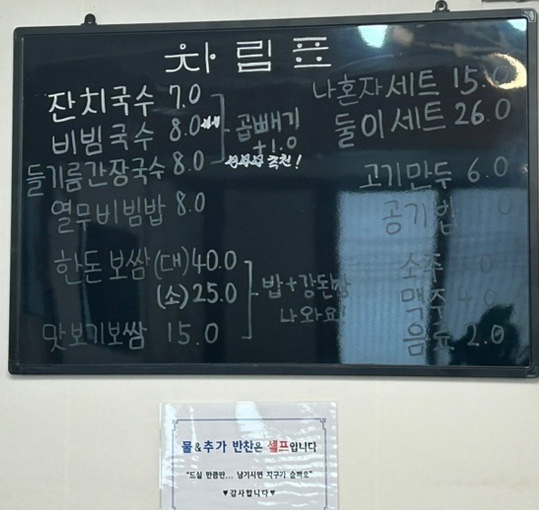 차림표
잔치국수 7.0
비빔국수 8.0
들기름간장국수 8.0
곱빼기
+1.0
추천!
열무비빔밥 8.0
한돈보쌈(대)40.0
(소)25.0
맛보기보쌈 15.0
밥+강된장
나와요!
나혼자세트 15.0
둘이세트 26.0
고기만두 6.0
공기밥
소주
맥주 4.0
음료 2.0
물&추가 반찬은 셀프입니다
"드실 만큼만... 남기시면 지구가 슬퍼요"
♥감사합니다♥